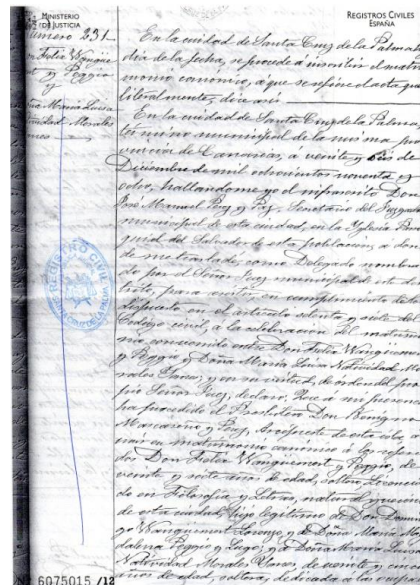 MINISTERIO
DE JUSTICIA
REGISTROS CIVILES
ESPAÑA
Número 231
Don Felix Wangüemert
y Poggio
y
Doña María Luisa
Natividad Morales
En la ciudad de Santa Cruz de la Palma
día de la fecha, se procede á inscribir el matri
monio canónico, á que se refiere el acta que
literalmente, dice así
En la ciudad de Santa Cruz de la Palma,
término municipal de la misma pro
vincia de Canarias, á veinte y seis de
Diciembre de mil ochocientos noventa y
ocho, hallandome yo el infrascrito Don
José Manuel Secretario del Juzgado
municipal de esta ciudad, en la Iglesia Parro
quial del Salvador de esta poblacion, á don
de me trasladé, como Delegado nombra
do por el Señor Juez municipal de este
para asistir en cumplimiento de lo
dispuesto en el artículo setenta y siete del
Código civil, á la celebracion del matrimo
nio convenido entre Don Felix Wangüemert
y Poggio y Doña María Luisa Natividad Mo
rales y en su virtud, de orden del pro
pio Señor Juez, declaro: Que á mi presencia
ha procedido el Presbítero Don Benigno
Arcipreste de esta isla, á
unir en matrimonio canónico á los referi
dos Don Felix Wangüemert y Poggio, de
veinte y siete años de edad, soltero, Licencia
do en Filosofía y Letras, natural y vecino
de esta ciudad, hijo legítimo de Don Domin
go Wangüemert Lorenzo y de Doña María Mag
dalena Poggio y Lugo; y á Doña María Luisa
Natividad Morales de veinte y cinco
años de edad, soltera, dedicada á la
REGISTRO CIVIL
SANTA CRUZ DE LA PALMA
Nº 6075015 /12